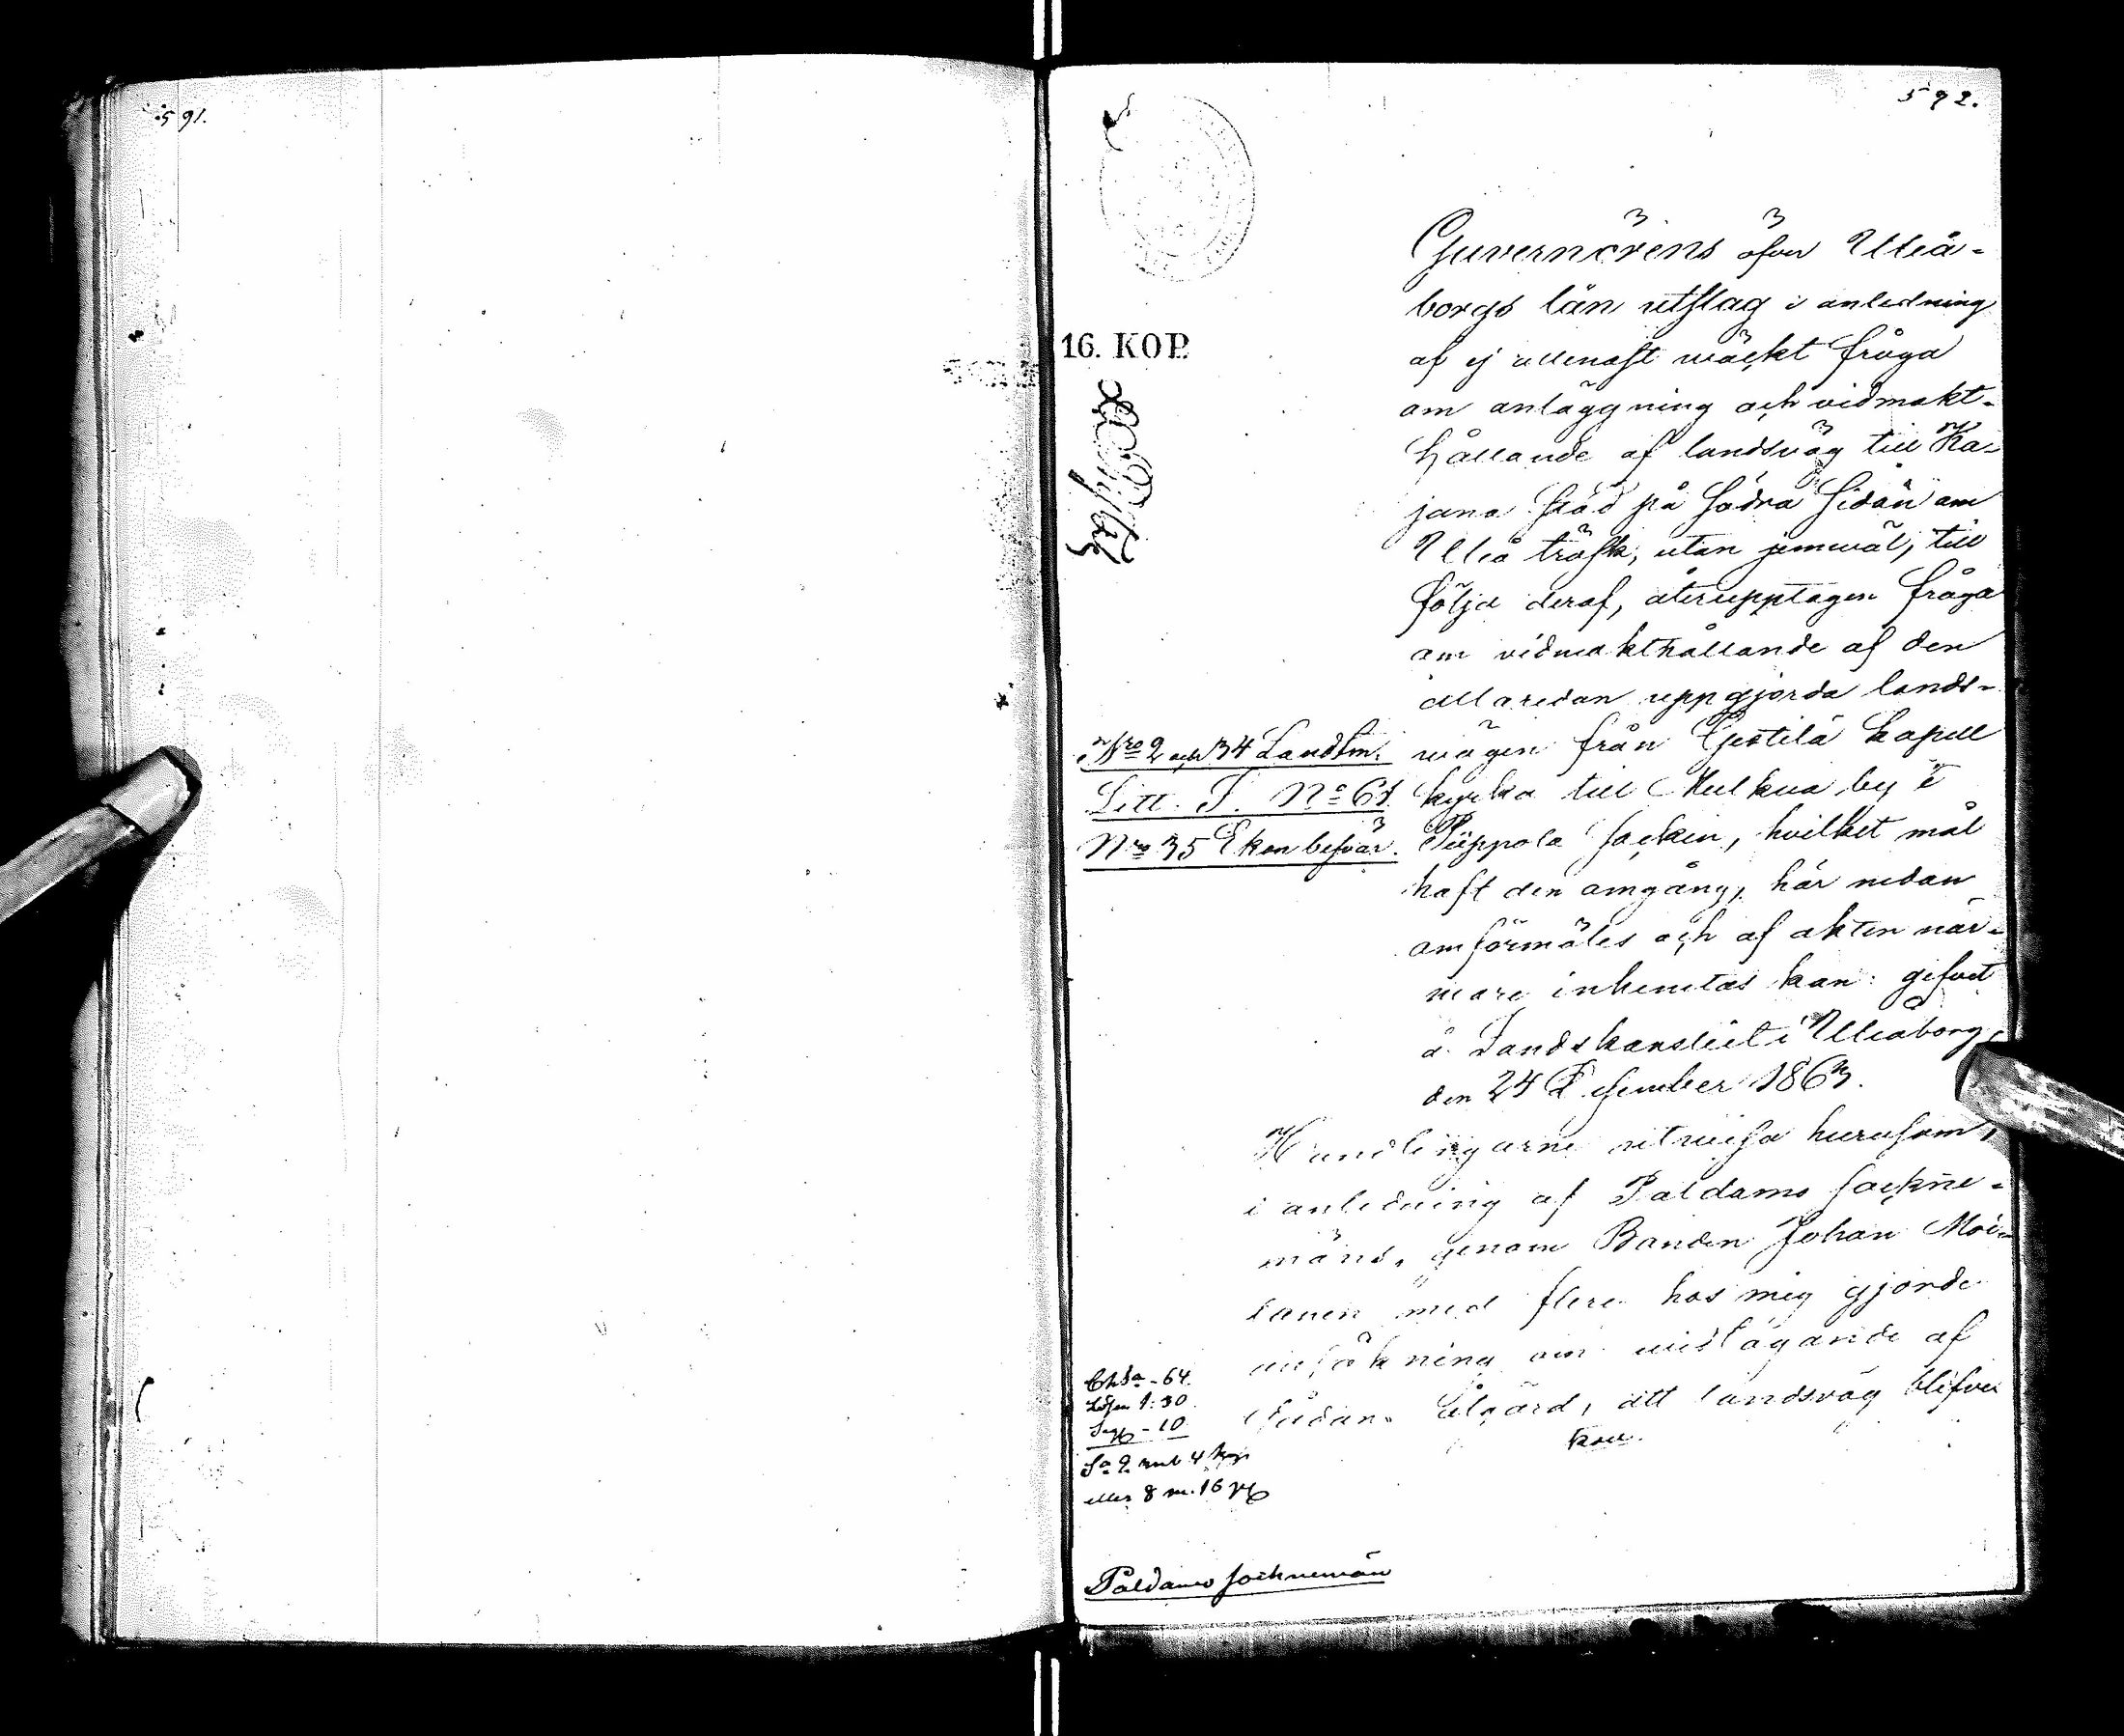 591.
592.
16. KOP.
Guvernörens öfver Uleå-
borgs län utslag i anledning
af ej allenast wäckt fråga
om anläggning och vidmakt-
hållande af landsväg till Ka-
jana stad på södra sidan om
Uleå träsk, utan jemwäl, till
följd deraf, återupptagen fråga
om vidmakthållande af den
allaredan uppgjorda lands-
wägen från Gestilä kapell
kyrka till Mulkua by i
Piippola socken, hvilket mål
haft den omgång, här nedan
omförmäles och af akten när-
mare inhemtas kan: gifvet
å Landskansliet i Uleåborg,
den 24 December 1863.
Nro 2 och 34 Landtm.
Litt. T. No 61.
Nro 35 Ekon besvär.
Handlingarne utwisa hurusom,
i anledning af Paldamo sockne-
mäns, genom Bonden Johan Moi-
lanen med flere hos mig gjorde
ansökning om widtagande af
sådan åtgärd, att landsväg blefve
Chta - 64.
Lösen 1: 30
- 10
Sa 2 rub 4 kop
eller 8 m. 16 p
Paldamo socknemän